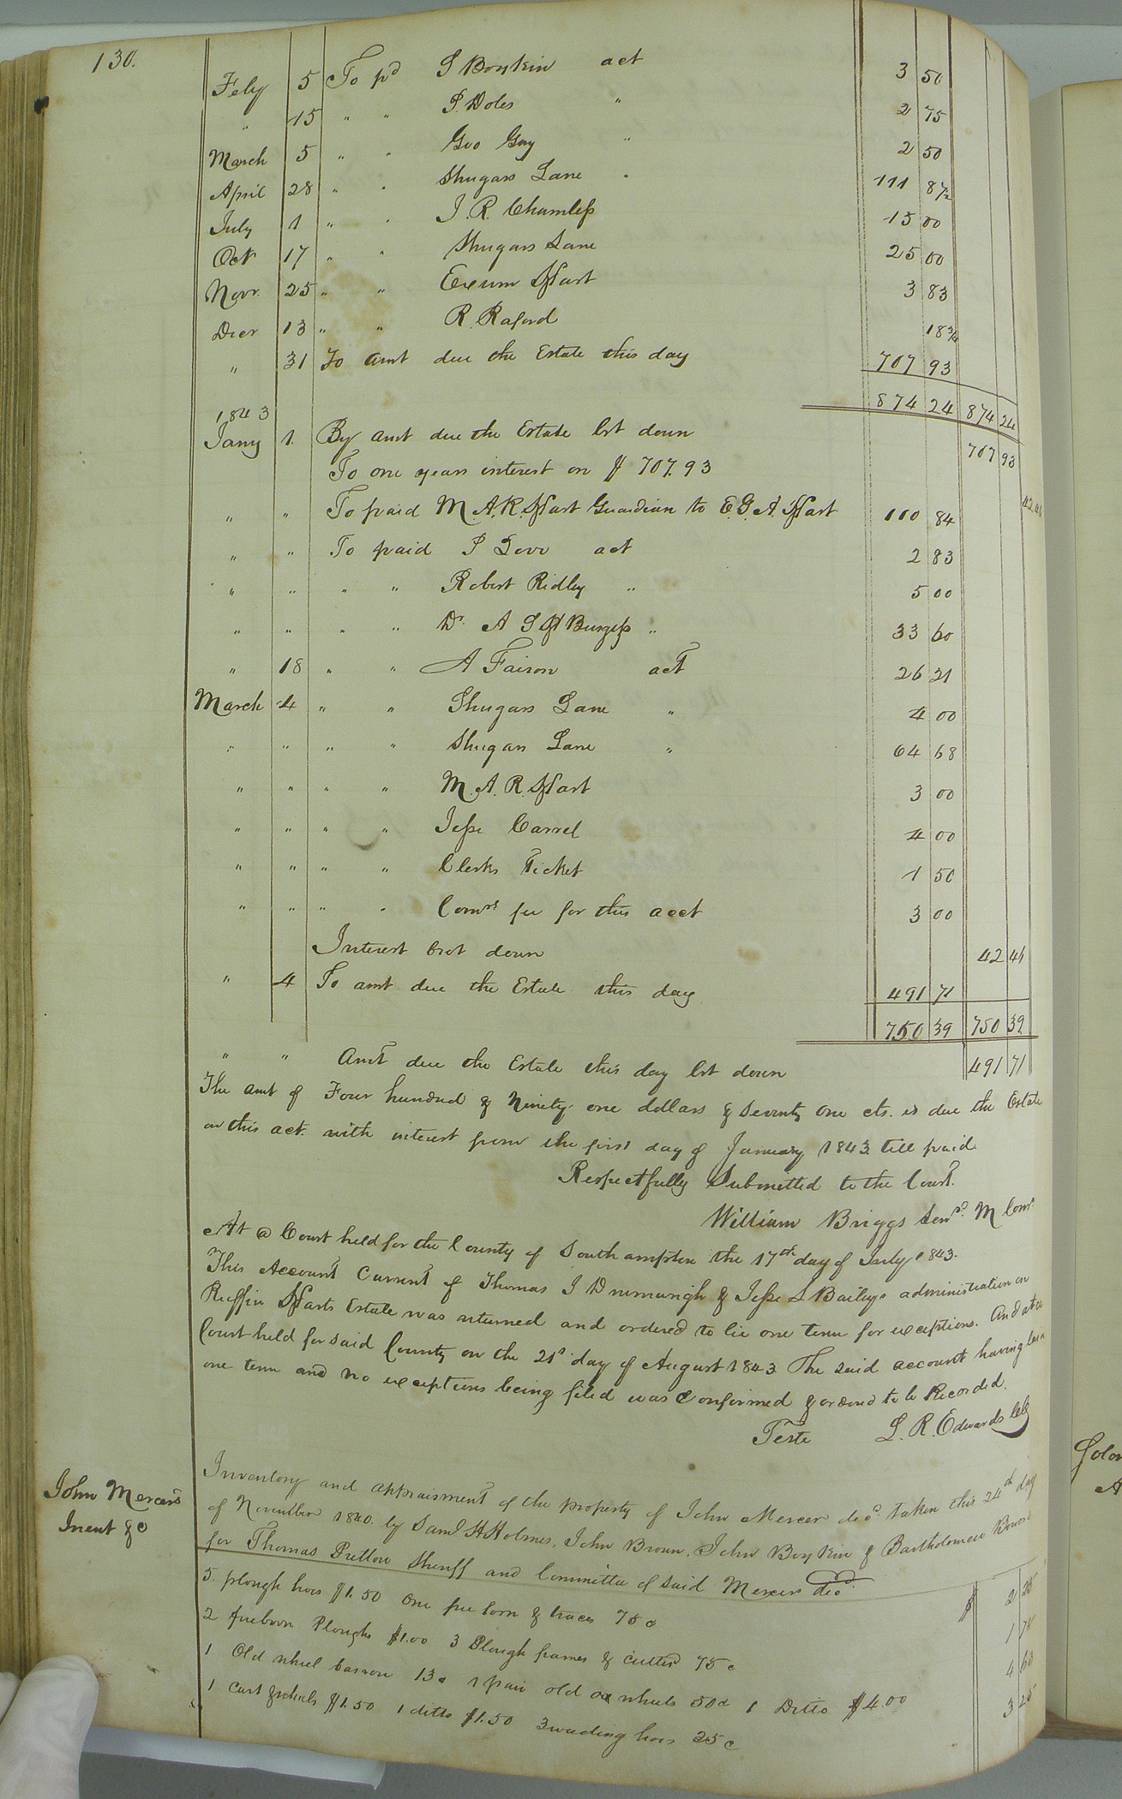 130.
Feby 5 To pd S Boykin act 3 50
" 15 " " P. Doles " 2 75
March 5 " " Geo Gay " 2 50
April 28 " " Shugars Lane " 111 87½
July 1 " " J. R. Chambliss 15 00
Oct 17 " " Shugars Lane 25 00
Novr. 25 " " Exum Hart 3 83
Decr 13 " " R. Raford 18¾
" 31 To amt due the Estate this day 707 93
874 24 874 24
1843
Jany 1. By amt due the Estate bt down 707 93
To one years interest on $ 707.93 42
" " To paid M. A. R. Hart Guardian to E. G. A. Hart 110 84
" " To paid act 2 83
" " " " Robert Ridley " 5 00
" " " " Dr. A S H Burgess " 33 60
" 18 " " A Faison act 26 21
March 4 " " Shugars Lane " 4 00
" " " " Shugars Lane " 64 68
" " " " M. A. R. Hart 3 00
" " " " Jesse Carrel 4 00
" " " " Clerks Ticket 1 50
" " " " Comrs fee for this acct 3 00
Interest brot down 42 46
" 4 To amt due the Estate this day 491 71
750 39 750 39
" " Amt due the Estate this day bt down 491 71
The amt of Four hundred & Ninety one dollars & Seventy one cts. is due the Estate
on this act. with interest from the first day of January 1843 till paid
Respectfully Submitted to the Court.
William Briggs Senr. M Comr
At a Court held for the County of Southampton the 17th day of July 1843.
This Account Current of Thomas J Drumwrigh & Jesse L Baileys administration on
Ruffin Harts Estate was returned and ordered to lie one term for exceptions. And at a
Court held for said County on the 21st day of August 1843 The said account having lain
one term and no exceptions being filed was Confirmed & ordered to be Recorded.
Teste L. R. Edwards Clk
John Mercers
Invent &c
Inventory and appraisment of the property of John Mercer decd. taken this 24th day
of November 1840. by Saml H Holmes, John Brown, John Boykin & Bartholomew Brown
for Thomas Pretlow Sheriff and Committee of said Mercer decd
5 plough hoes $1.50 One 75 c $ 2 25
2 Ploughs $1.00 3 Plough frames & cutter 75 c 1 75
1 Old wheel barrow 13c 1 pair old ox wheels 50c 1 Ditto $4.00 4 63
1 cart & wheels $1.50 1 ditto $1.50 3 weeding hoes 25 c 3 25
Solo
A